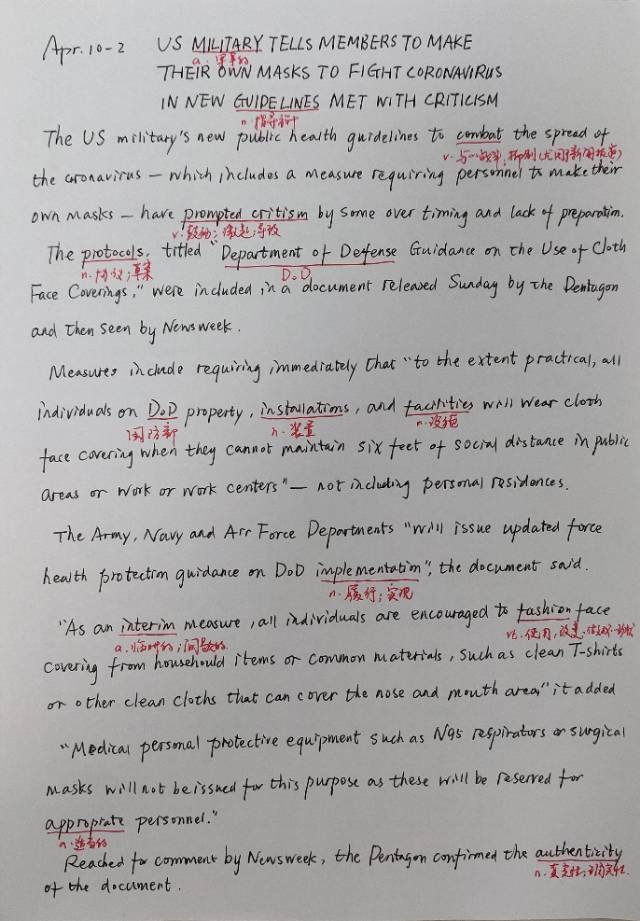 Apr. 10-2 US MILITARY TELLS MEMBERS TO MAKE
a. 军事的
THEIR OWN MASKS TO FIGHT CORONAVIRUS
IN NEW GUIDELINES MET WITH CRITICISM
n. 指导方针
The US military's new public health guidelines to combat the spread of
v. 与…战斗, 抑制
the coronavirus — which includes a measure requiring personnel to make their
own masks — have prompted critism by some over timing and lack of preparation.
v. 鼓动; 激起; 导致
The protocols, titled "Department of Defense Guidance on the Use of Cloth
n. 协议; 草案 DoD
Face Coverings," were included in a document released Sunday by the Pentagon
and then seen by Newsweek.
Measures include requiring immediately that "to the extent practical, all
individuals on DoD property, installations, and facilities will wear cloth
国防部 n. 装置 n. 设施
face covering when they cannot maintain six feet of social distance in public
areas or work or work centers" — not including personal residences.
The Army, Navy and Air Force Departments "will issue updated force
health protection guidance on DoD implementation", the document said.
n. 履行; 实现
"As an interim measure, all individuals are encouraged to fashion face
a. 临时的; 间歇的 vt. 使用, 改变
covering from househould items or common materials, such as clean T-shirts
or other clean cloths that can cover the nose and mouth area" it added
"Medical personal protective equipment such as N95 respirators or surgical
masks will not be issued for this purpose as these will be reserved for
approprate personnel."
a. 适当的
Reached for comment by Newsweek, the Pentagon confirmed the authenticity
n. 真实性; 确实性
of the document.